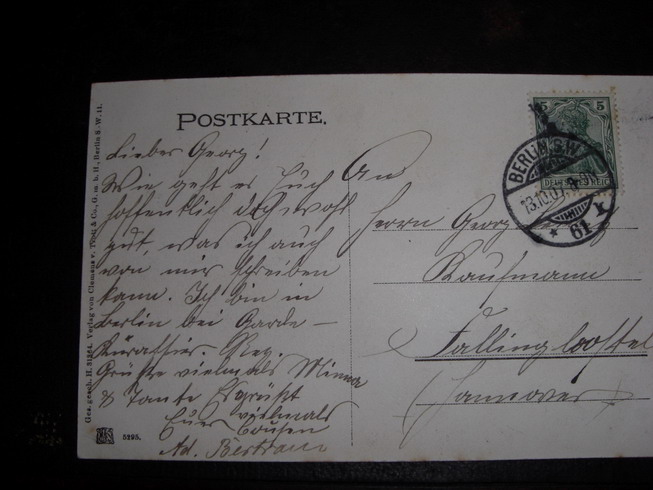 POSTKARTE.
Lieber Georg!
Wie geht es Euch
hoffentlich doch wohl
gut, was ich auch
von mir schreiben
kann. Ich bin in
Berlin bei Garde-
Kürassier. Reg.
Grüße vielmals Minna
& Tante Es grüßt
Euer vielmals
Cousen
Ad. Bertram
An
Herrn Georg
Kaufmann
Fallingbostel
(Hannover)
5 5
BERLIN S.W.
13.10.07
* 61
Ges. gesch. H. Verlag von Clemens v. & Co., G. m. b. H., Berlin S.-W. 11.
5295.